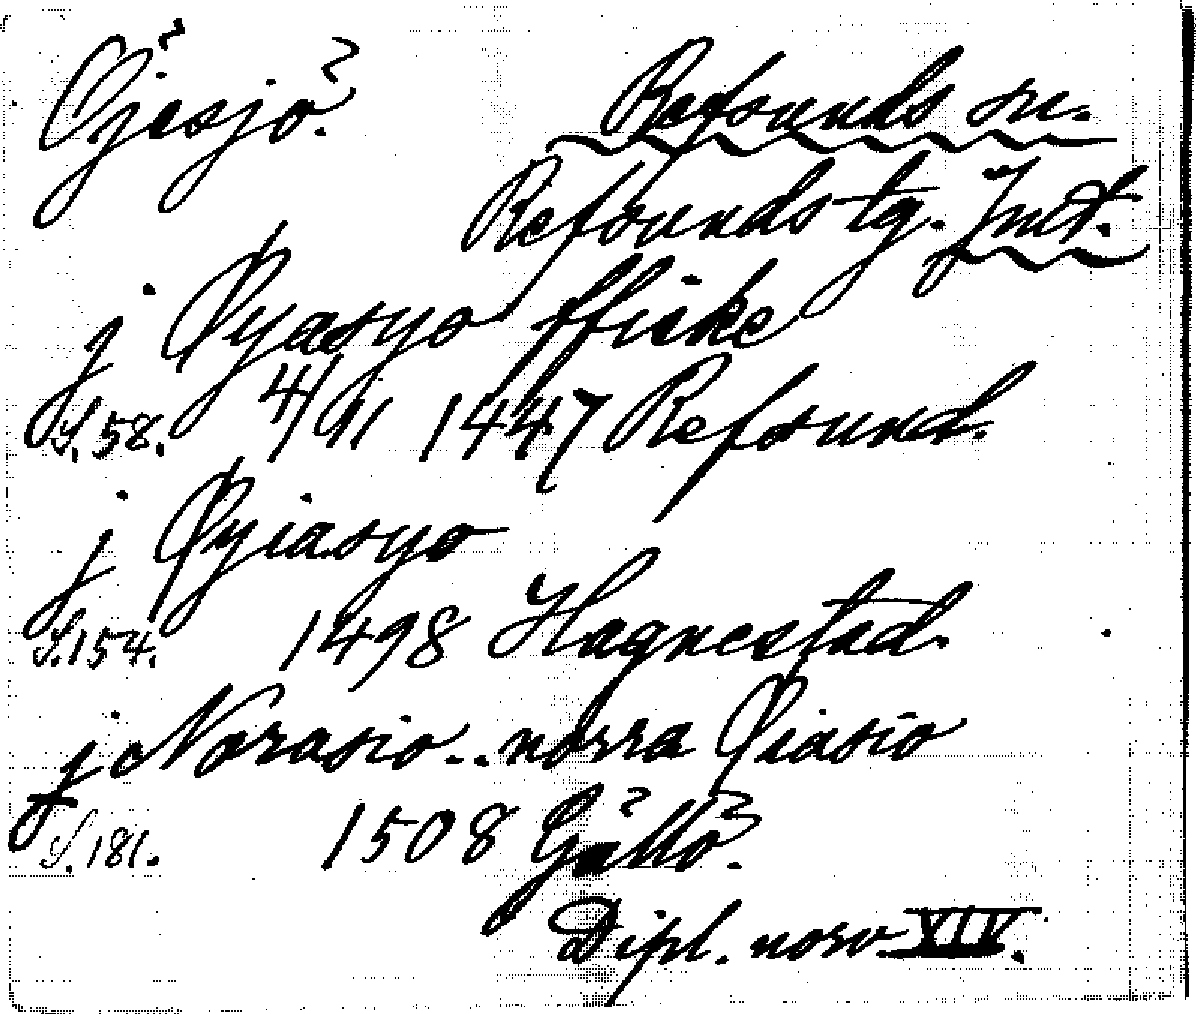 Öjesjö.
Refsunds sn.
Refsunds tg. Jmt.
j Øyasyo ffiske
S. 58. 4/11 1447 Refsund.
j Øyiasyo
S. 154. 1498 Hagnestad.
j Norasio.. norra Øiasio
S. 181. 1508 Gällö.
Dipl. norv. XIV.